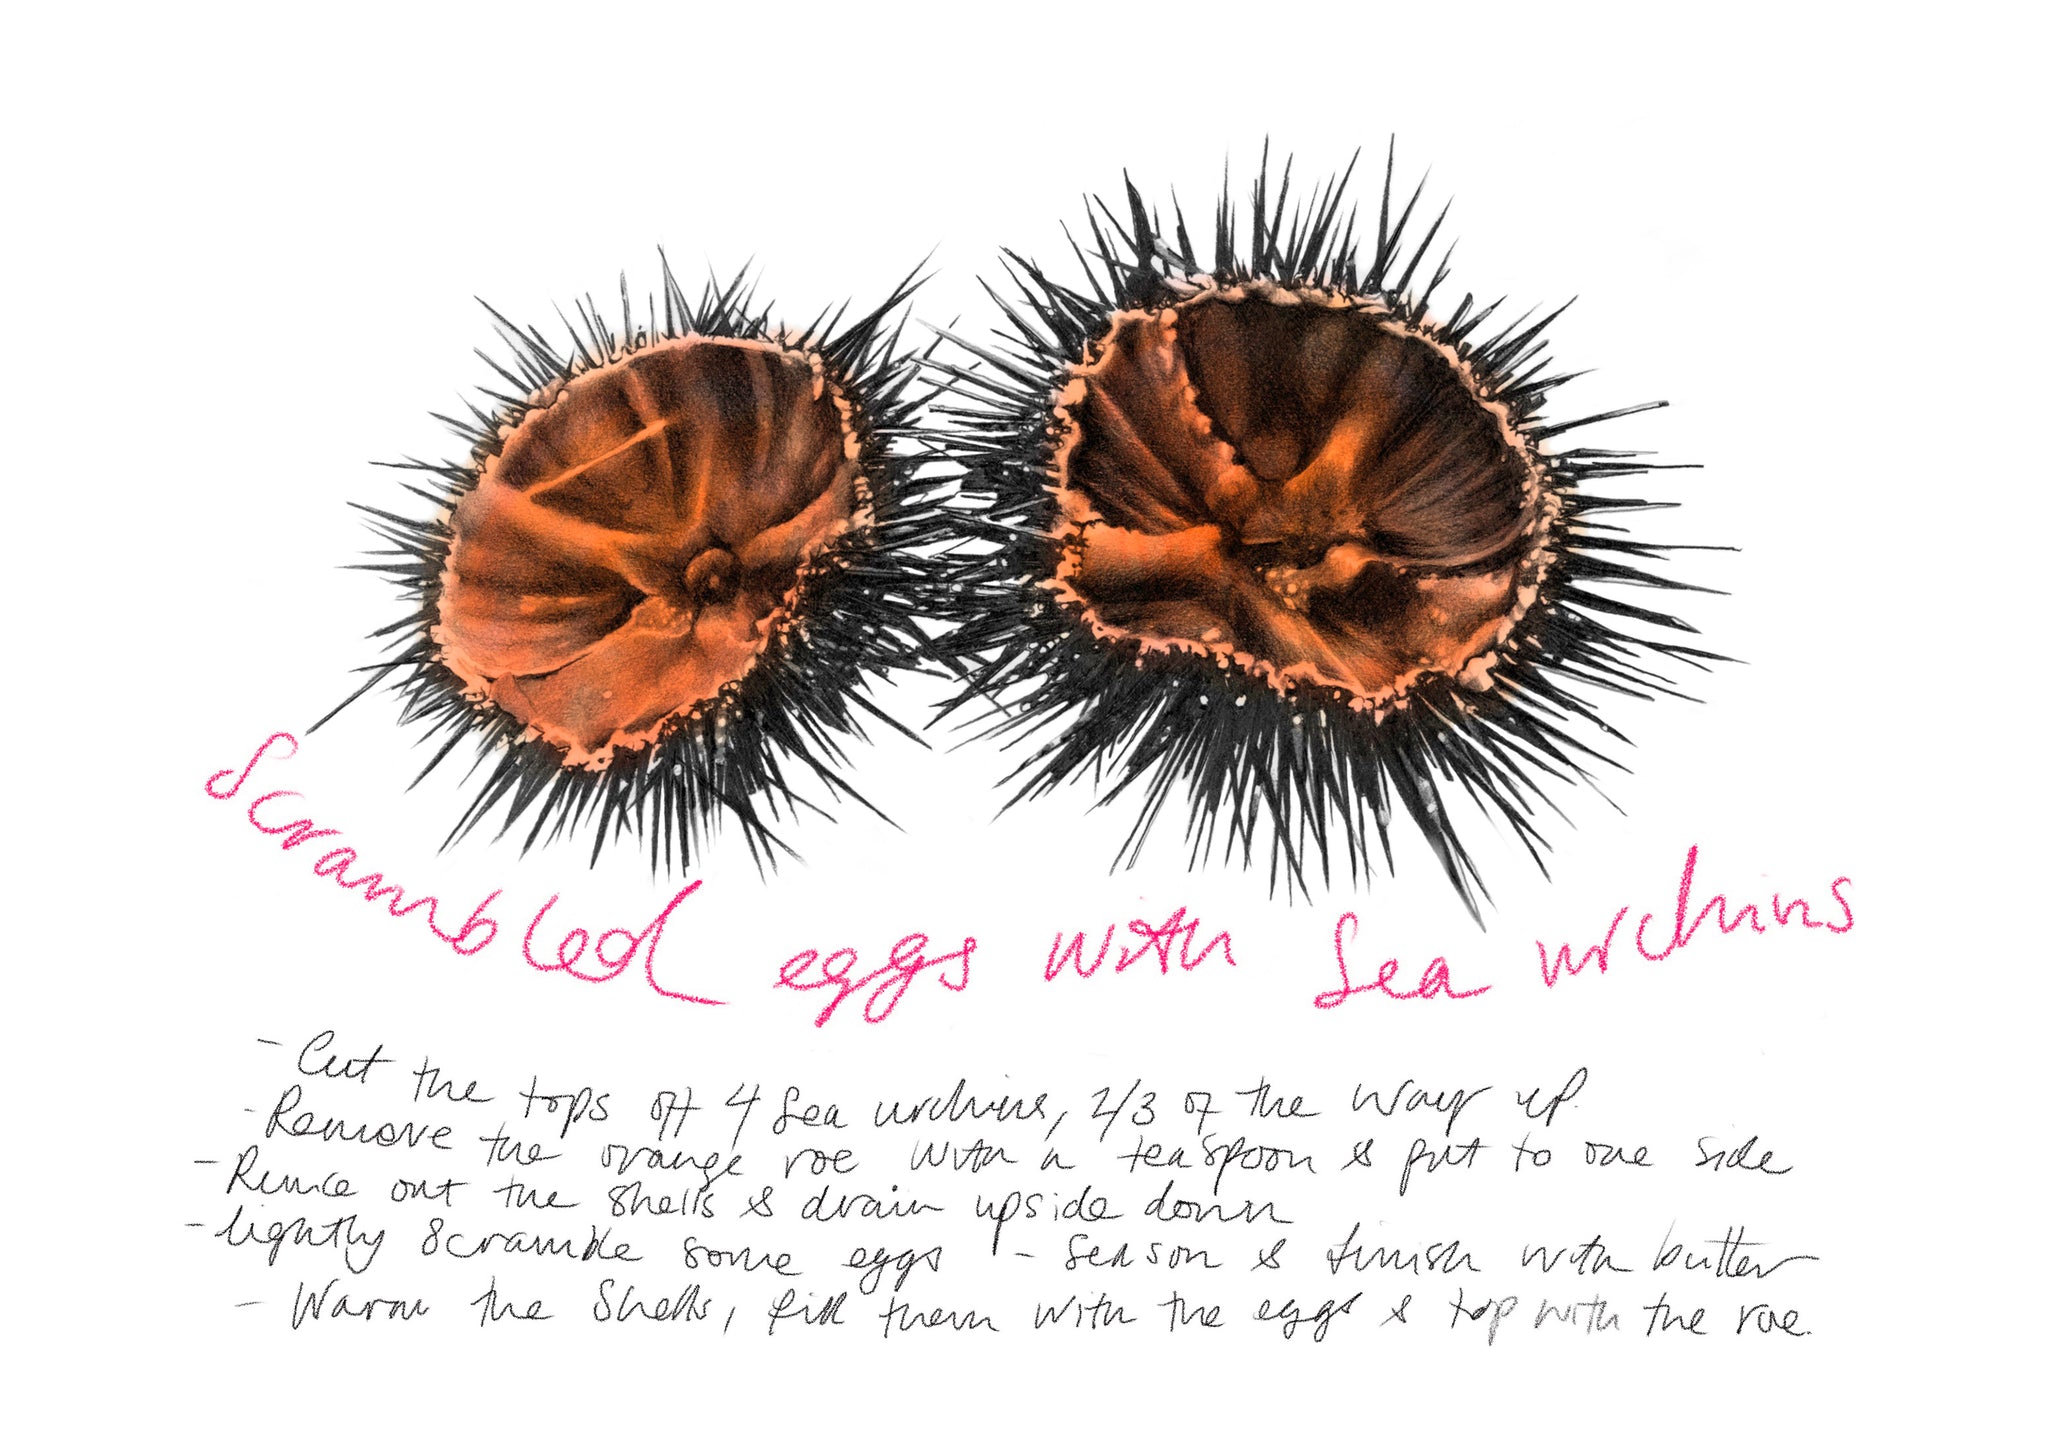 Scrambled eggs with Sea urchins
- Cut the tops off 4 Sea urchins, 2/3 of the way up.
- Remove the orange roe with a teaspoon & put to one side
- Rince out the shells & drain upside down
- lightly scramble some eggs - Season & finish with butter
- Warm the Shells, fill them with the eggs & top with the roe.